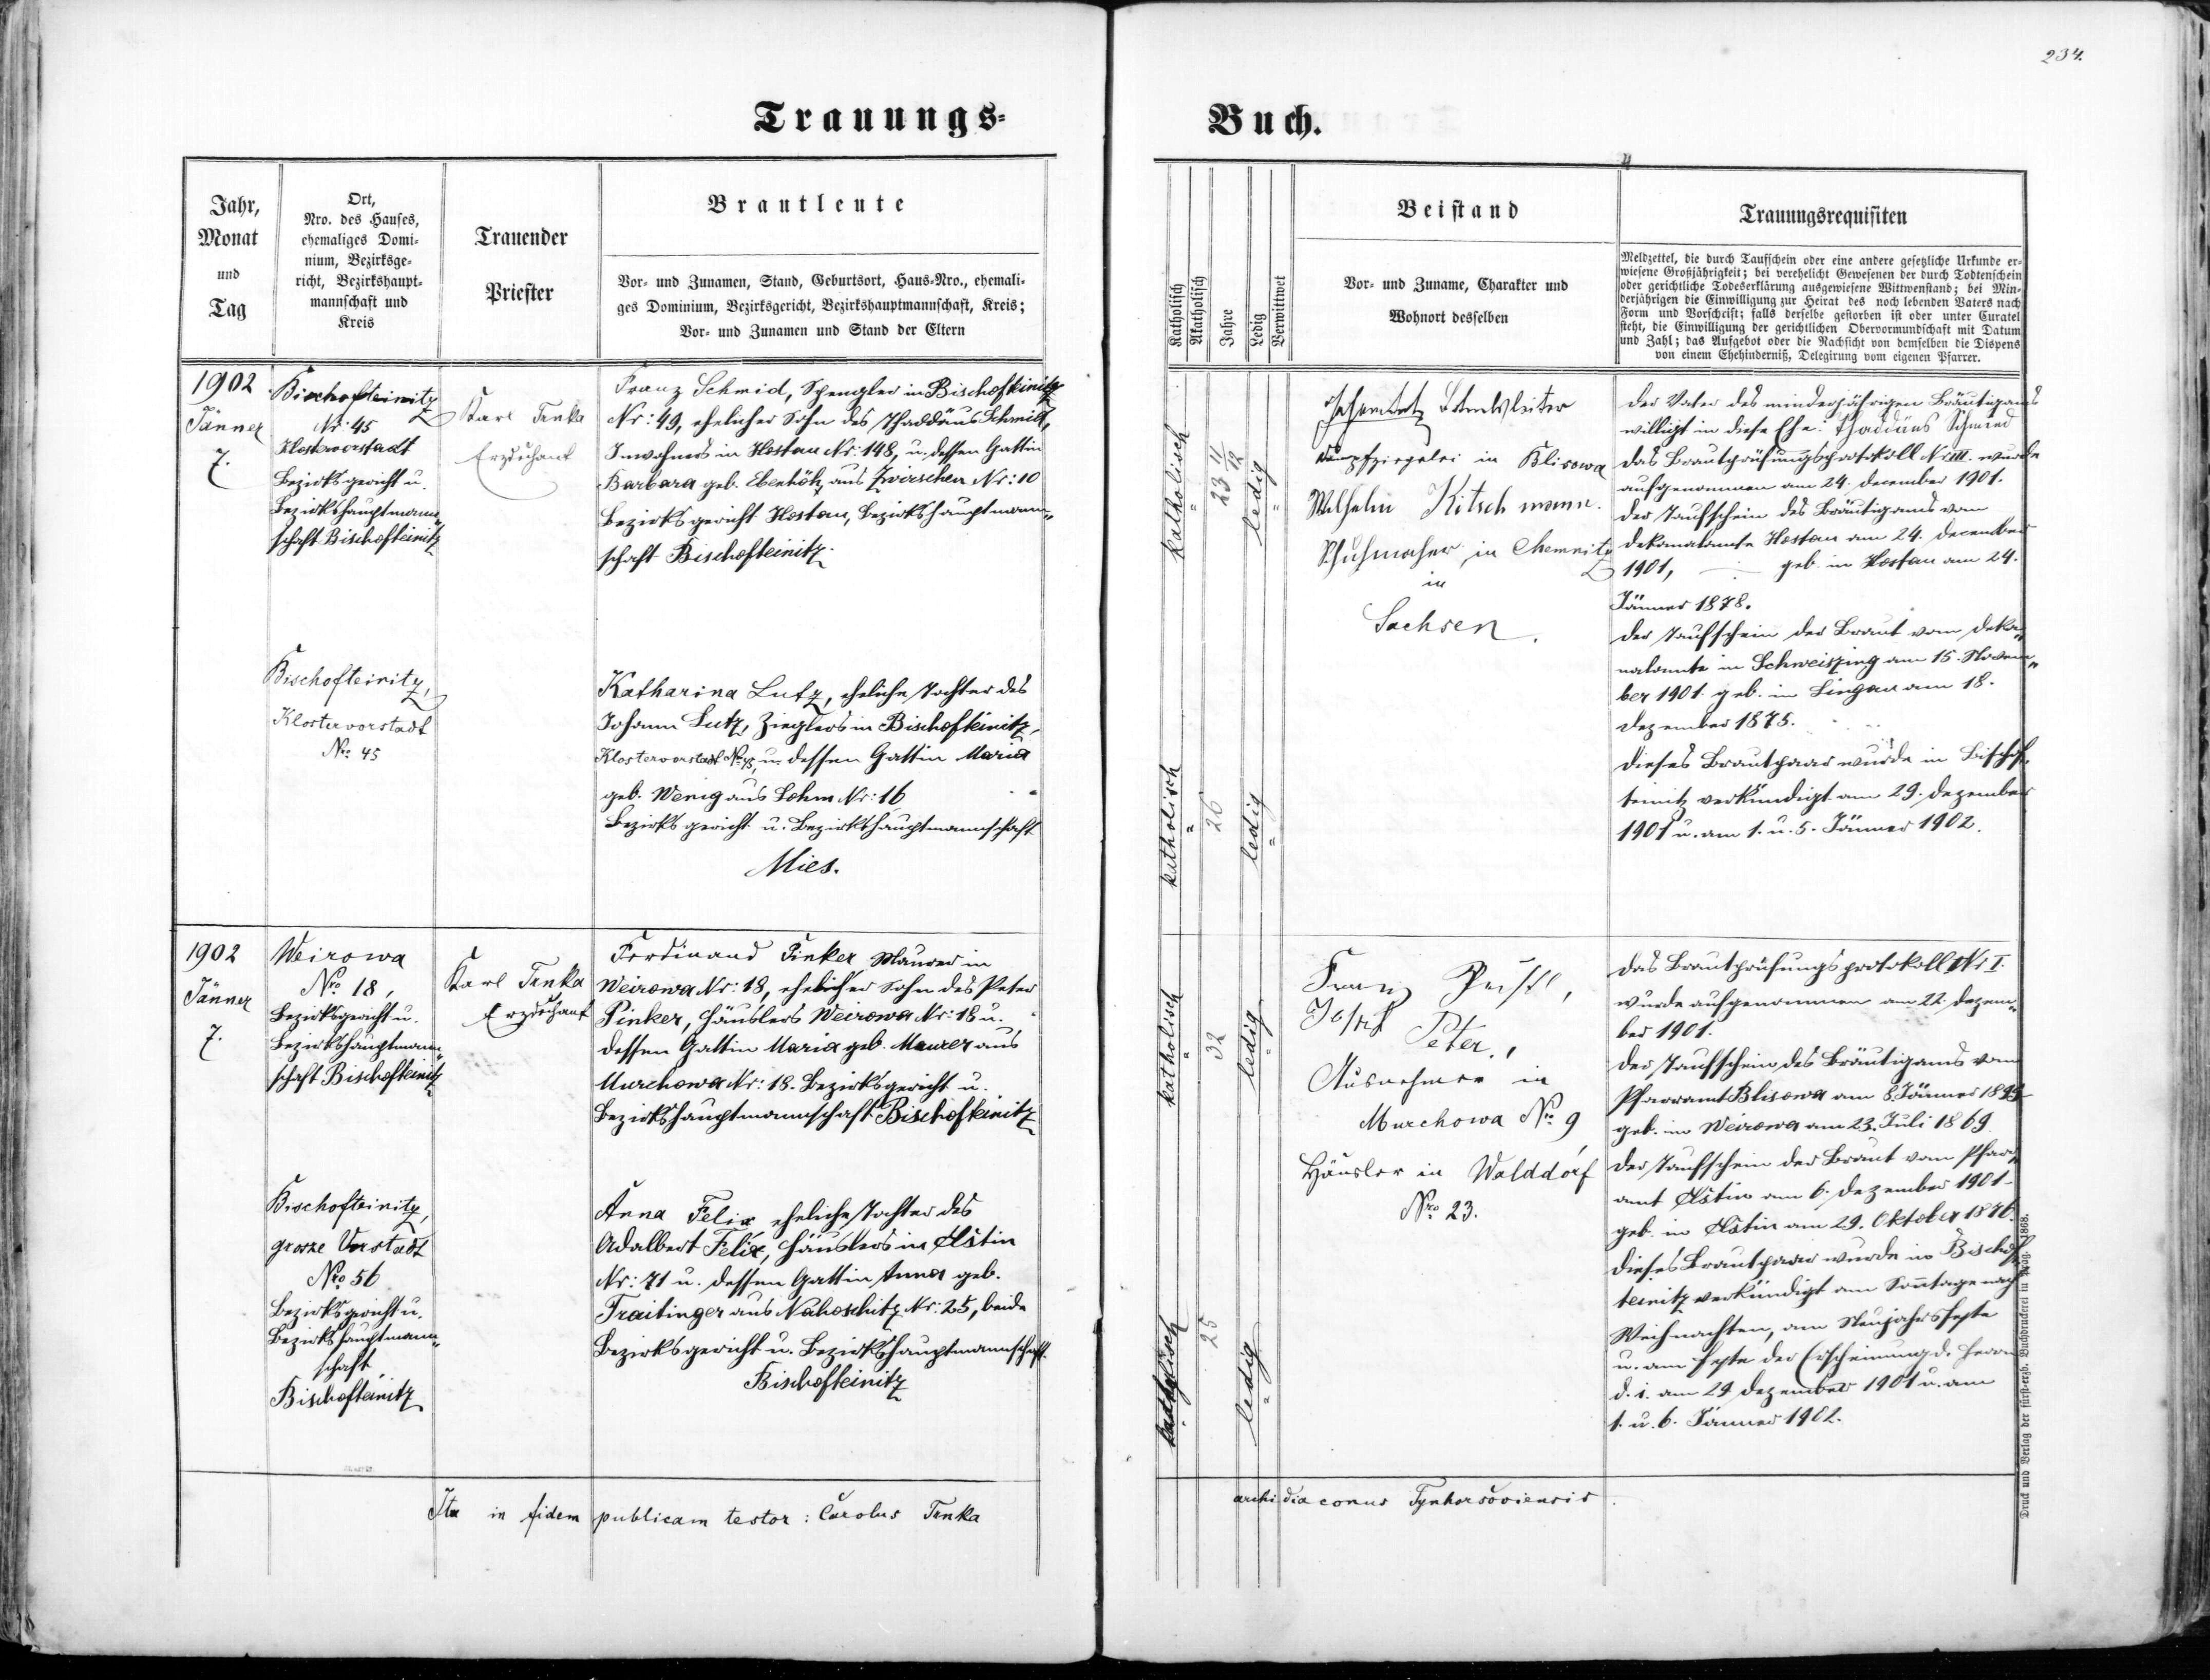 234.
Trauungs-
Buch.
Jahr,
Monat
und
Tag
Ort,
Nro. des Hauses,
ehemaliges Domi-
nium, Bezirksge-
richt, Bezirkshaupt-
mannschaft und
Kreis
Trauender
Priester
Brautleute
Vor- und Zunamen, Stand, Geburtsort, Haus-Nro., ehemali-
ges Dominium, Bezirksgericht, Bezirkshauptmannschaft, Kreis;
Vor- und Zunamen und Stand der Eltern
Katholisch
Akatholisch
Jahre
Ledig
Verwittwet
Beistand
Vor- und Zuname, Charakter und
Wohnort desselben
Trauungsrequisiten
Meldzettel, die durch Taufschein oder eine andere gesetzliche Urkunde er-
wiesene Großjährigkeit; bei verehelicht Gewesenen der durch Todtenschein
oder gerichtliche Todeserklärung ausgewiesene Wittwenstand; bei Min-
derjährigen die Einwilligung zur Heirat des noch lebenden Vaters nach
Form und Vorschrift; falls derselbe gestorben ist oder unter Curatel
steht, die Einwilligung der gerichtlichen Obervormundschaft mit Datum
und Zahl; das Aufgebot oder die Nachsicht von demselben die Dispens
von einem Ehehinderniß, Delegirung vom eigenen Pfarrer.
1902
Jänner
7.
Bischofteinitz
Nr: 45
Klostervorstadt
Bezirksgericht u.
Bezirkshauptmann„
schaft Bischofteinitz
Karl Tanka
Erzdechant
Franz Schmid, Spengler in Bischofteinitz
Nr: 49, ehelicher Sohn des Thaddäus Schmidt,
Inwohners in Hostau Nr: 148, u. dessen Gattin
Barbara geb. Ebenhöh, aus Zwirschen Nr: 10
Bezirksgericht Hostau, Bezirkshauptmann„
schaft Bischofteinitz.
katholisch
23 11/12
ledig
in Blisowa
Wilhelm Kitschmann.
Schuhmacher in Chemnitz
in
Sachsen.
Der Vater des minderjährigen Bräutigams
willigt in diese Ehe: Thaddäus Schmied
Das Brautprüfungsprotokoll Nr III. wurde
aufgenommen am 24. December 1901.
Der Taufschein des Bräutigams vom
Dekanalamte Hostau am 24. December
1901, geb. in Hostau am 24.
Jänner 1878.
Der Taufschein der Braut vom Deka„
nalamte in Schweissing am 15. Novem„
ber 1901. geb. in Lingau am 18.
Dezember 1875.
Dieses Brautpaar wurde in Bischof„
teinitz verkündigt am 29. Dezember
1901 u. am 1. u. 5. Jänner 1902.
Bischofteinitz,
Klostervorstadt
Nro 45
Katharina Lutz, eheliche Tochter des
Johann Lutz, Zieglers in Bischofteinitz,
Klostervorstadt No 45, u. dessen Gattin Maria
geb. Wenig aus Lohm Nr: 16
Bezirksgericht u. Bezirkshauptmannschaft
Mies.
katholisch
26
ledig
1902
Jänner
7.
Weirowa
Nro 18,
Bezirksgericht u.
Bezirkshauptmann„
schaft Bischofteinitz
Karl Tanka
Erzdechant
Ferdinand Pinker, Maurer in
Weirowa Nr: 18, ehelicher Sohn des Peter
Pinker, Häuslers Weirowa Nr: 18 u.
dessen Gattin Maria geb. Maurer aus
Murchowa Nr: 18. Bezirksgericht u.
Bezirkshauptmannschaft Bischofteinitz
katholisch
32
ledig
Franz
Josef Peter,
Ausnehmer in
Murchowa No 9
Häusler in Walddorf
Nro 23.
Das Brautprüfungsprotokoll Nr I.
wurde aufgenommen am 22. Dezem„
ber 1901.
Der Taufschein des Bräutigams vom
Pfarramt Blisowa am 8. Jänner
geb. in Weirowa am 23. Juli 1869.
Der Taufschein der Braut vom Pfarr„
amt Metzling am 6. Dezember 1901
geb. in am 29. Oktober 1876.
Dieses Brautpaar wurde in Bischof„
teinitz verkündigt am Sonntage nach
Weihnachten, am Neujahrsfeste
u. am Feste der Erscheinung d. Herrn
d. i. am 29 Dezember 1901 u. am
1. u. 6. Jänner 1902.
Bischofteinitz,
grosze Vorstadt
Nro 56
Bezirksgericht u.
Bezirkshauptmann„
schaft
Bischofteinitz
Anna Felix, eheliche Tochter des
Adalbert Felix, Häuslers in
Nr: 71 u. dessen Gattin Anna geb.
Traitinger aus Nahoschitz Nr: 25, beide
Bezirksgericht u. Bezirkshauptmannschaft
Bischofteinitz
katholisch
25
ledig
Ita in fidem publicam testor: Carolus Tanka
archidiaconus Tynhoršoviensis.
Druck und Verlag der fürst-erzb. Buchdruckerei in Prag. 1868.